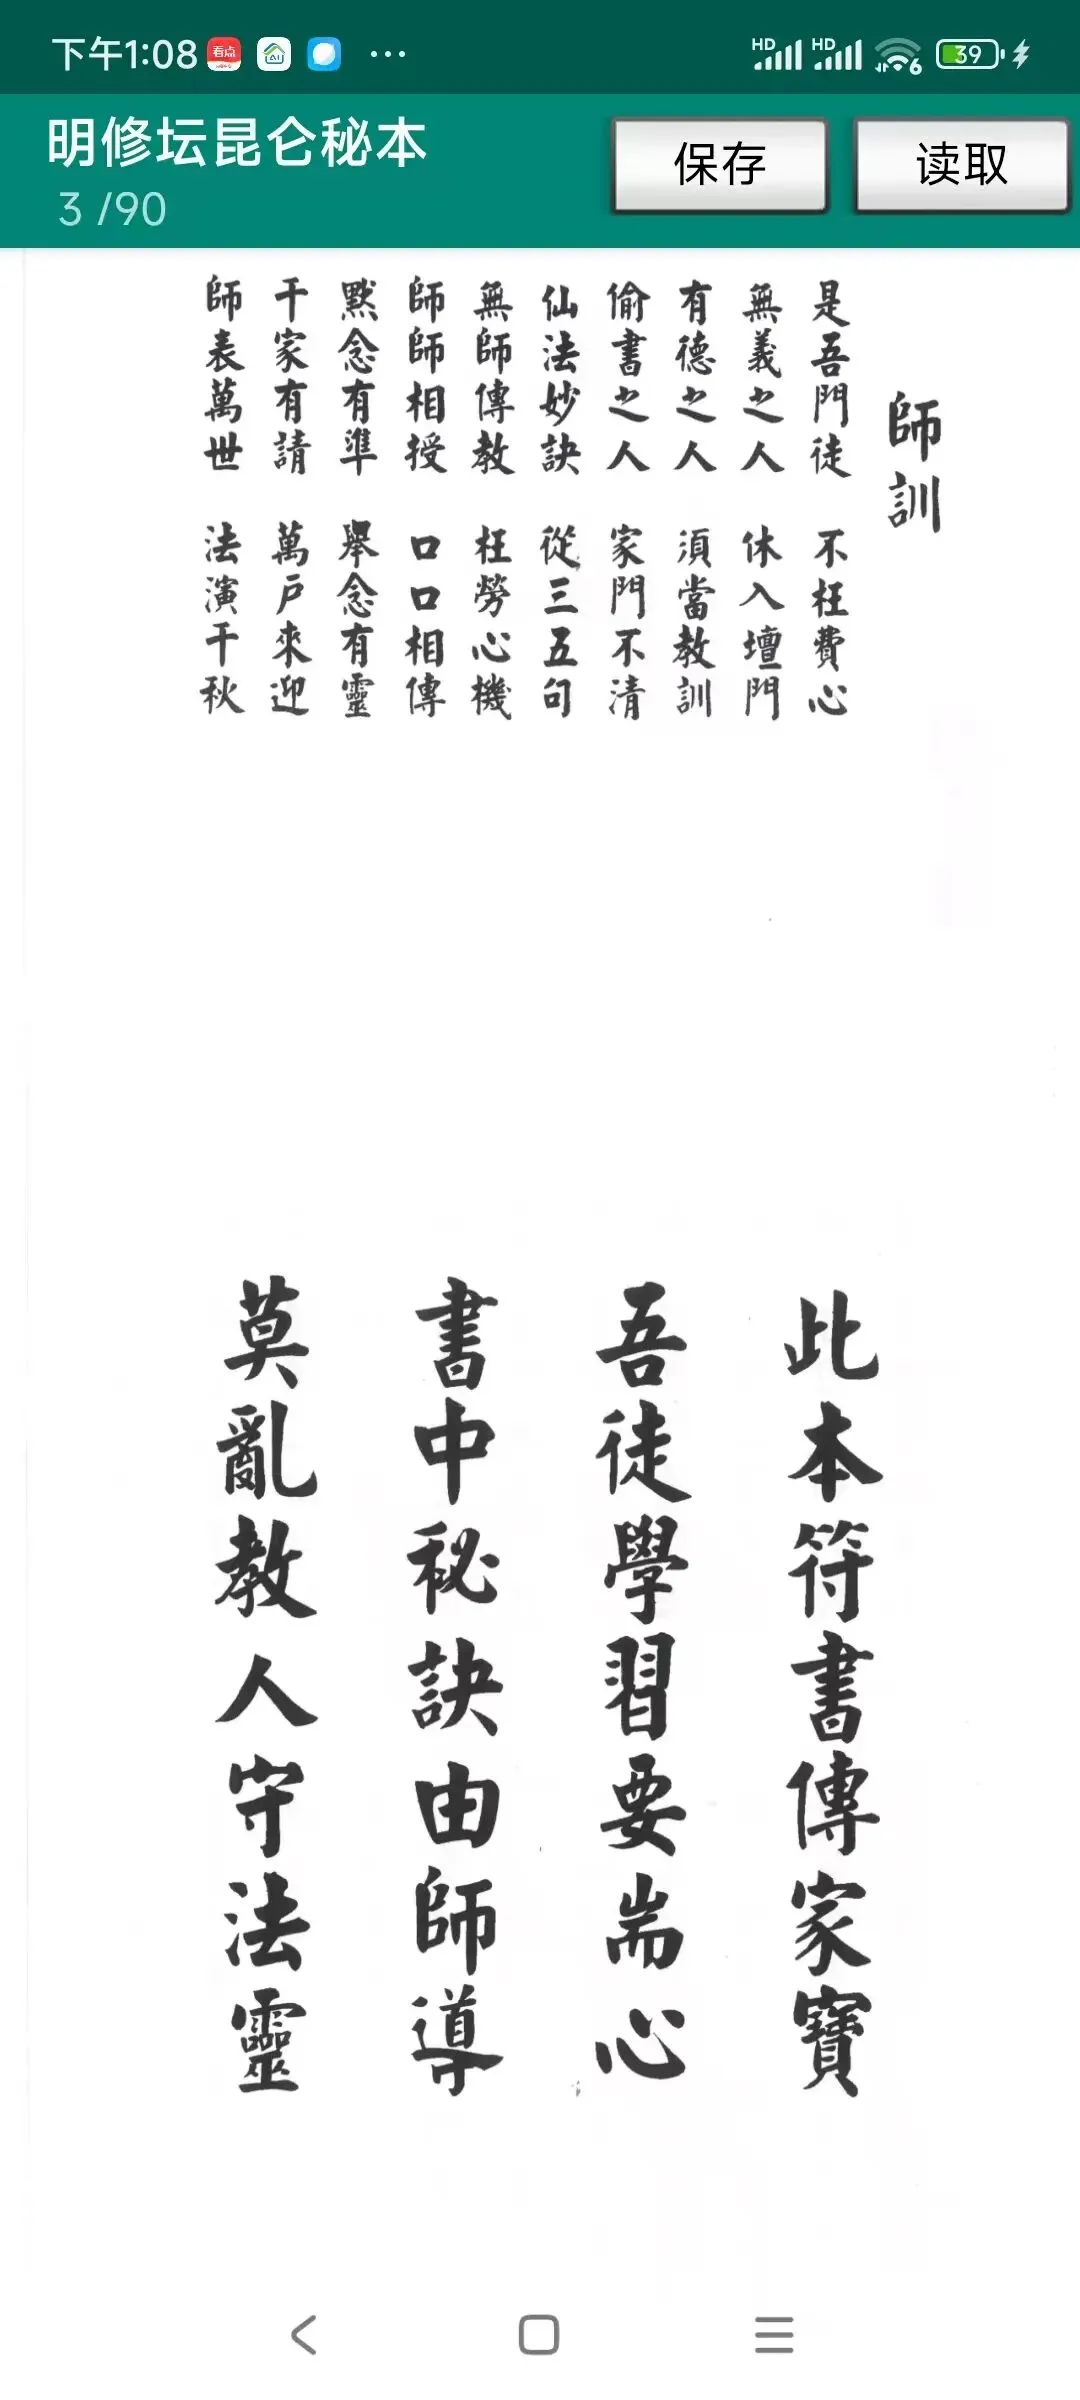 下午1:08 看点 AI ··· HD HD 6 39
明修坛昆仑秘本
保存
读取
3 /90
師訓
是吾門徒 不枉費心
無義之人 休入壇門
有德之人 須當教訓
偷書之人 家門不清
仙法妙訣 從三五句
無師傳教 枉勞心機
師師相授 口口相傳
默念有準 舉念有靈
千家有請 萬戶來迎
師表萬世 法演千秋
此本符書傳家寶
吾徒學習要耑心
書中秘訣由師導
莫亂教人守法靈